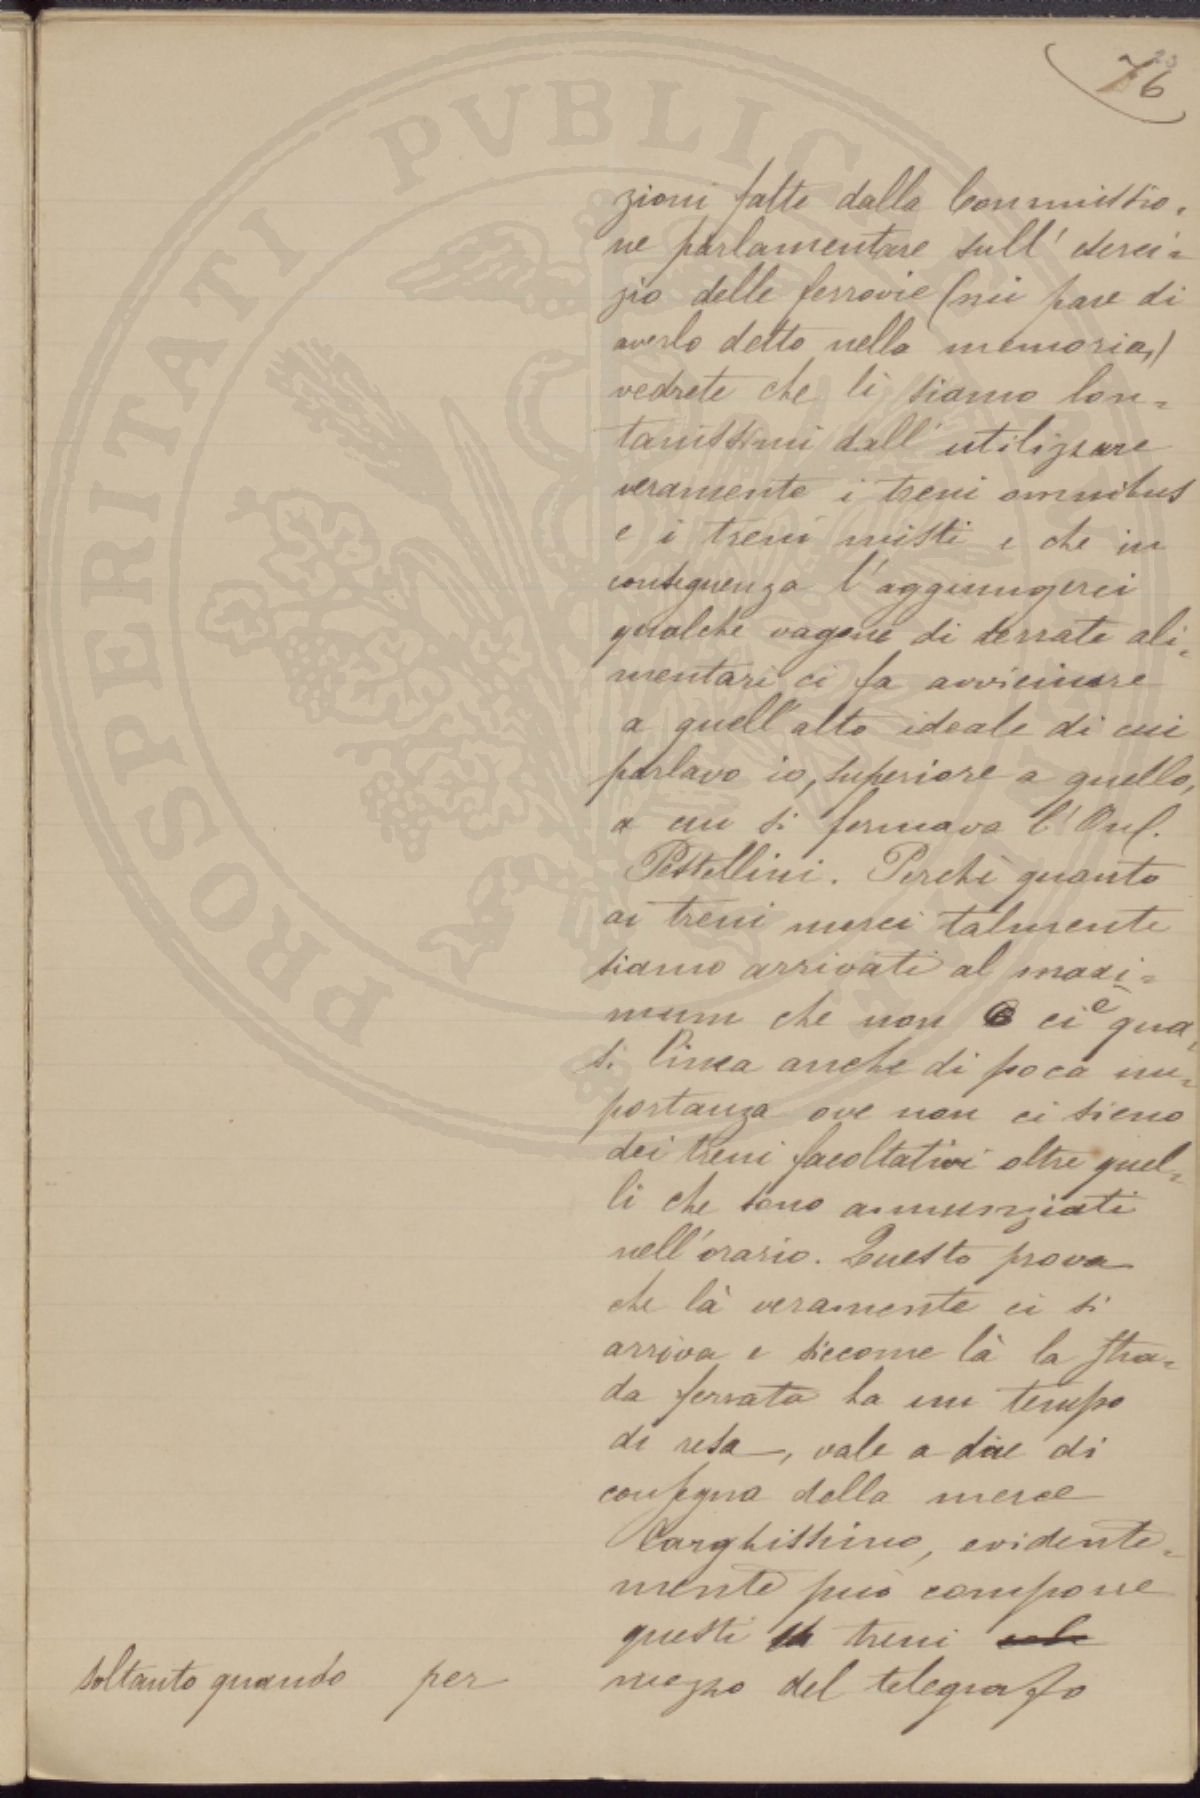 76
23
zioni fatte dalla Commissio-
ne parlamentare sull' eserci=
zio delle ferrovie (mi pare di
averlo detto nella memoria,)
vedrete che lì siamo lon=
tanissimi dall' utilizzare
veramente i treni omnibus
e i treni misti e che in
conseguenza l'aggiungerci
qualche vagone di derrate ali=
mentari ci fa avvicinare
a quell'alto ideale di cui
parlavo io, superiore a quello,
a cui si fermava l' Onl.
Pestellini. Perchè quanto
ai treni merci talmente
siamo arrivati al maxi=
mum che non ci è qua=
si linea anche di poca im=
portanza ove non ci sieno
dei treni facoltativi oltre quel=
li che sono annunziati
nell'orario. Questo prova
che là veramente ci si
arriva e siccome là la stra=
da ferrata ha un tempo
di resa, vale a dire di
consegna della merce
larghissimo, evidente=
mente può comporre
questi treni
soltanto quando per mezzo del telegrafo
PROSPERITATI PVBLIC